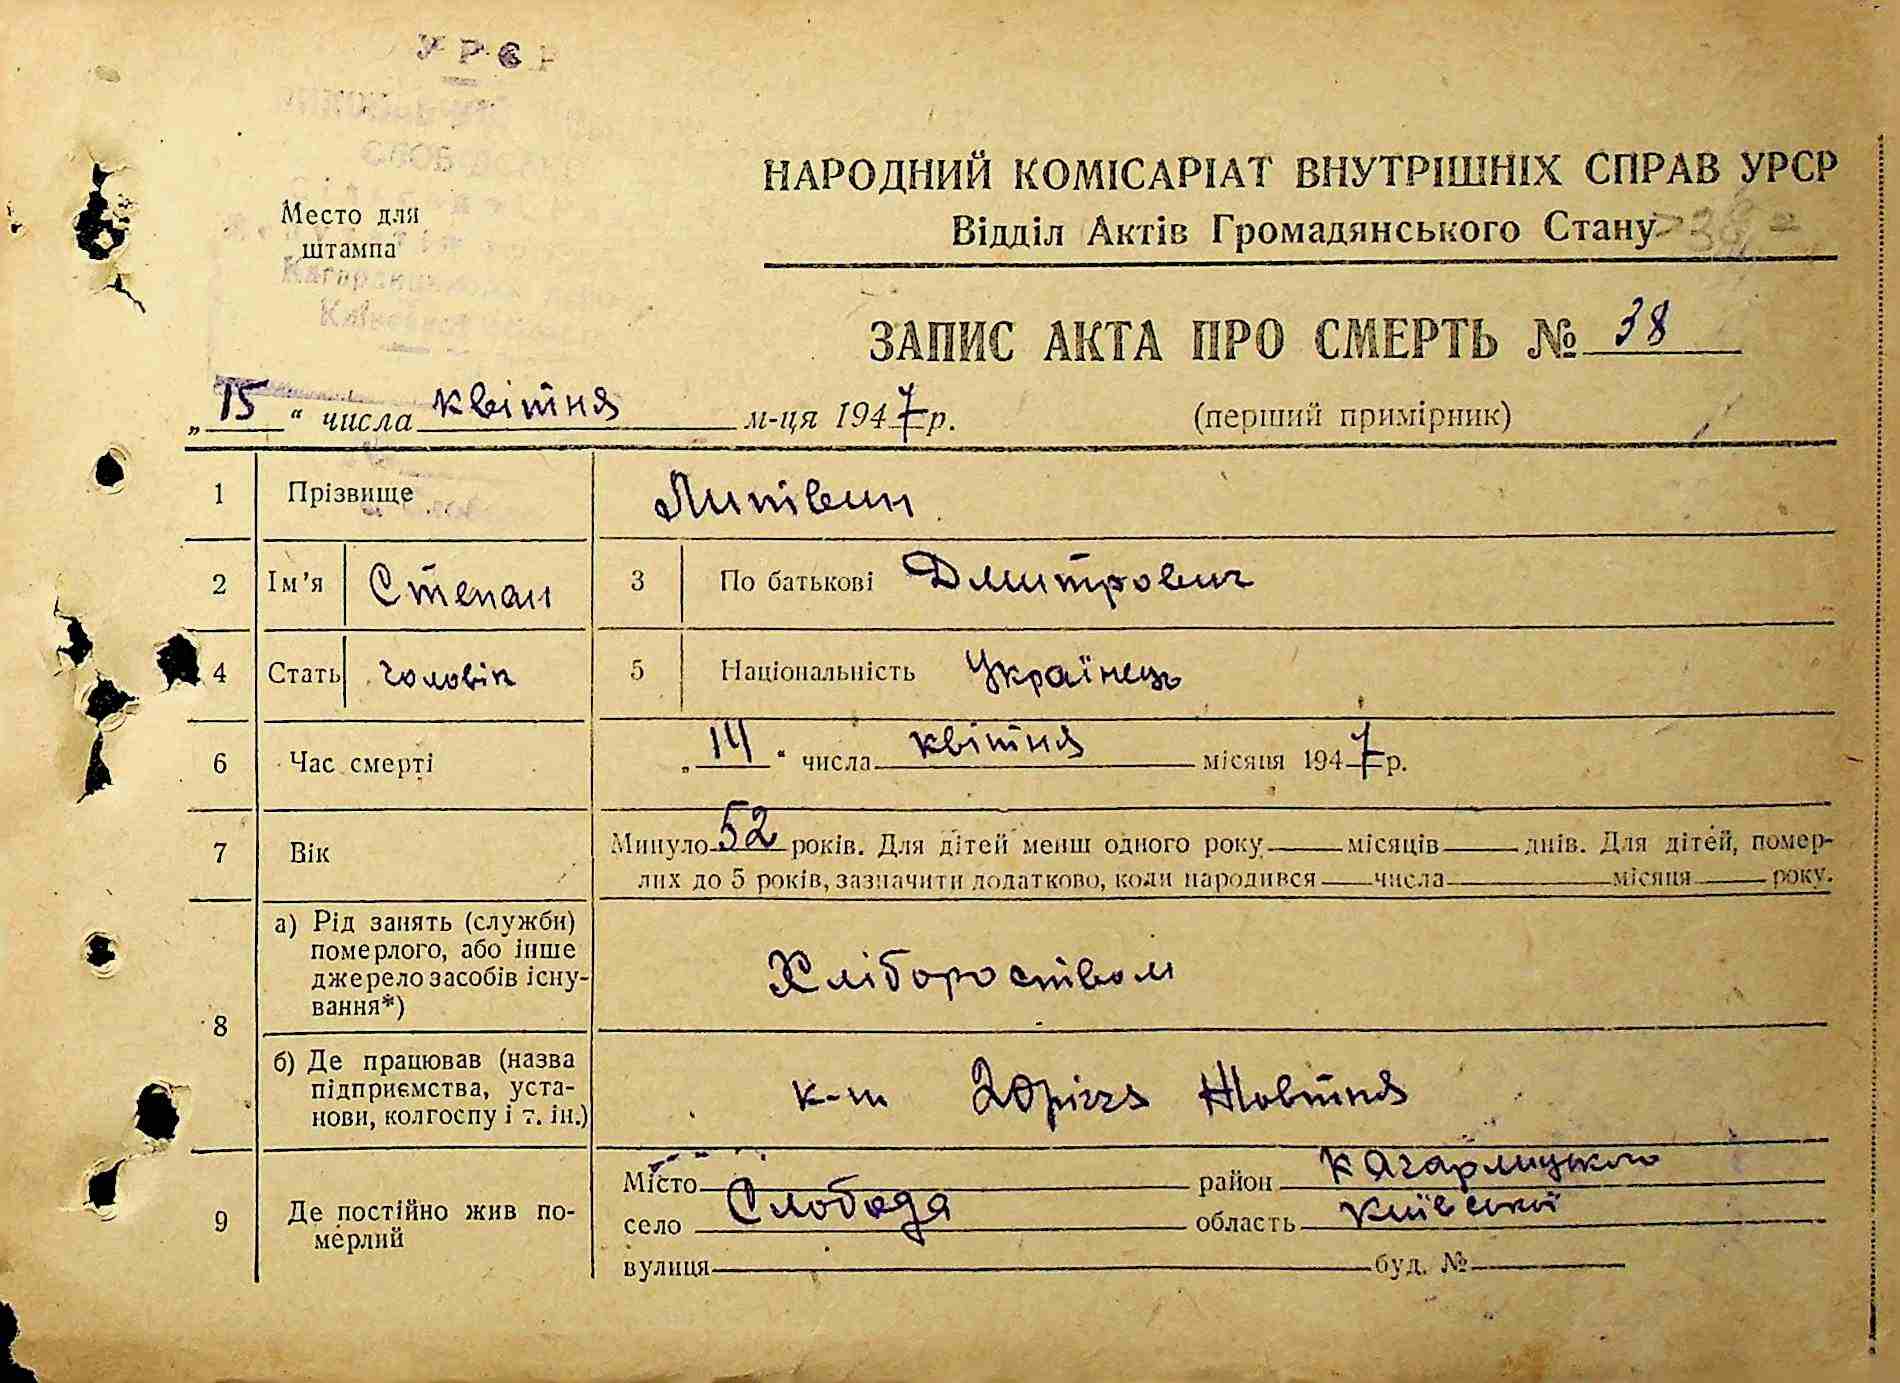 УРСР
Место для
штампа
НАРОДНИЙ КОМІСАРІАТ ВНУТРІШНІХ СПРАВ УРСР
Відділ Актів Громадянського Стану
38
ЗАПИС АКТА ПРО СМЕРТЬ № 38
„15“ числа квітня м-ця 1947 р. (перший примірник)
1 Прізвище Литівин
2 Ім'я Степан 3 По батькові Дмитрович
4 Стать чоловік 5 Національність Українець
6 Час смерті „14“ числа квітня місяця 1947 р.
7 Вік Минуло 52 років. Для дітей менш одного року місяців днів. Для дітей, помер-
лих до 5 років, зазначити додатково, коли народився числа місяця року.
8 а) Рід занять (служби)
померлого, або інше
джерело засобів існу-
вання*)
Хліборобством
б) Де працював (назва
підприємства, уста-
нови, колгоспу і т. ін.)
к-п 20річчя Жовтня
9 Де постійно жив по-
мерлий
Місто район Кагарлицького
село Слобода область Київської
вулиця буд. №